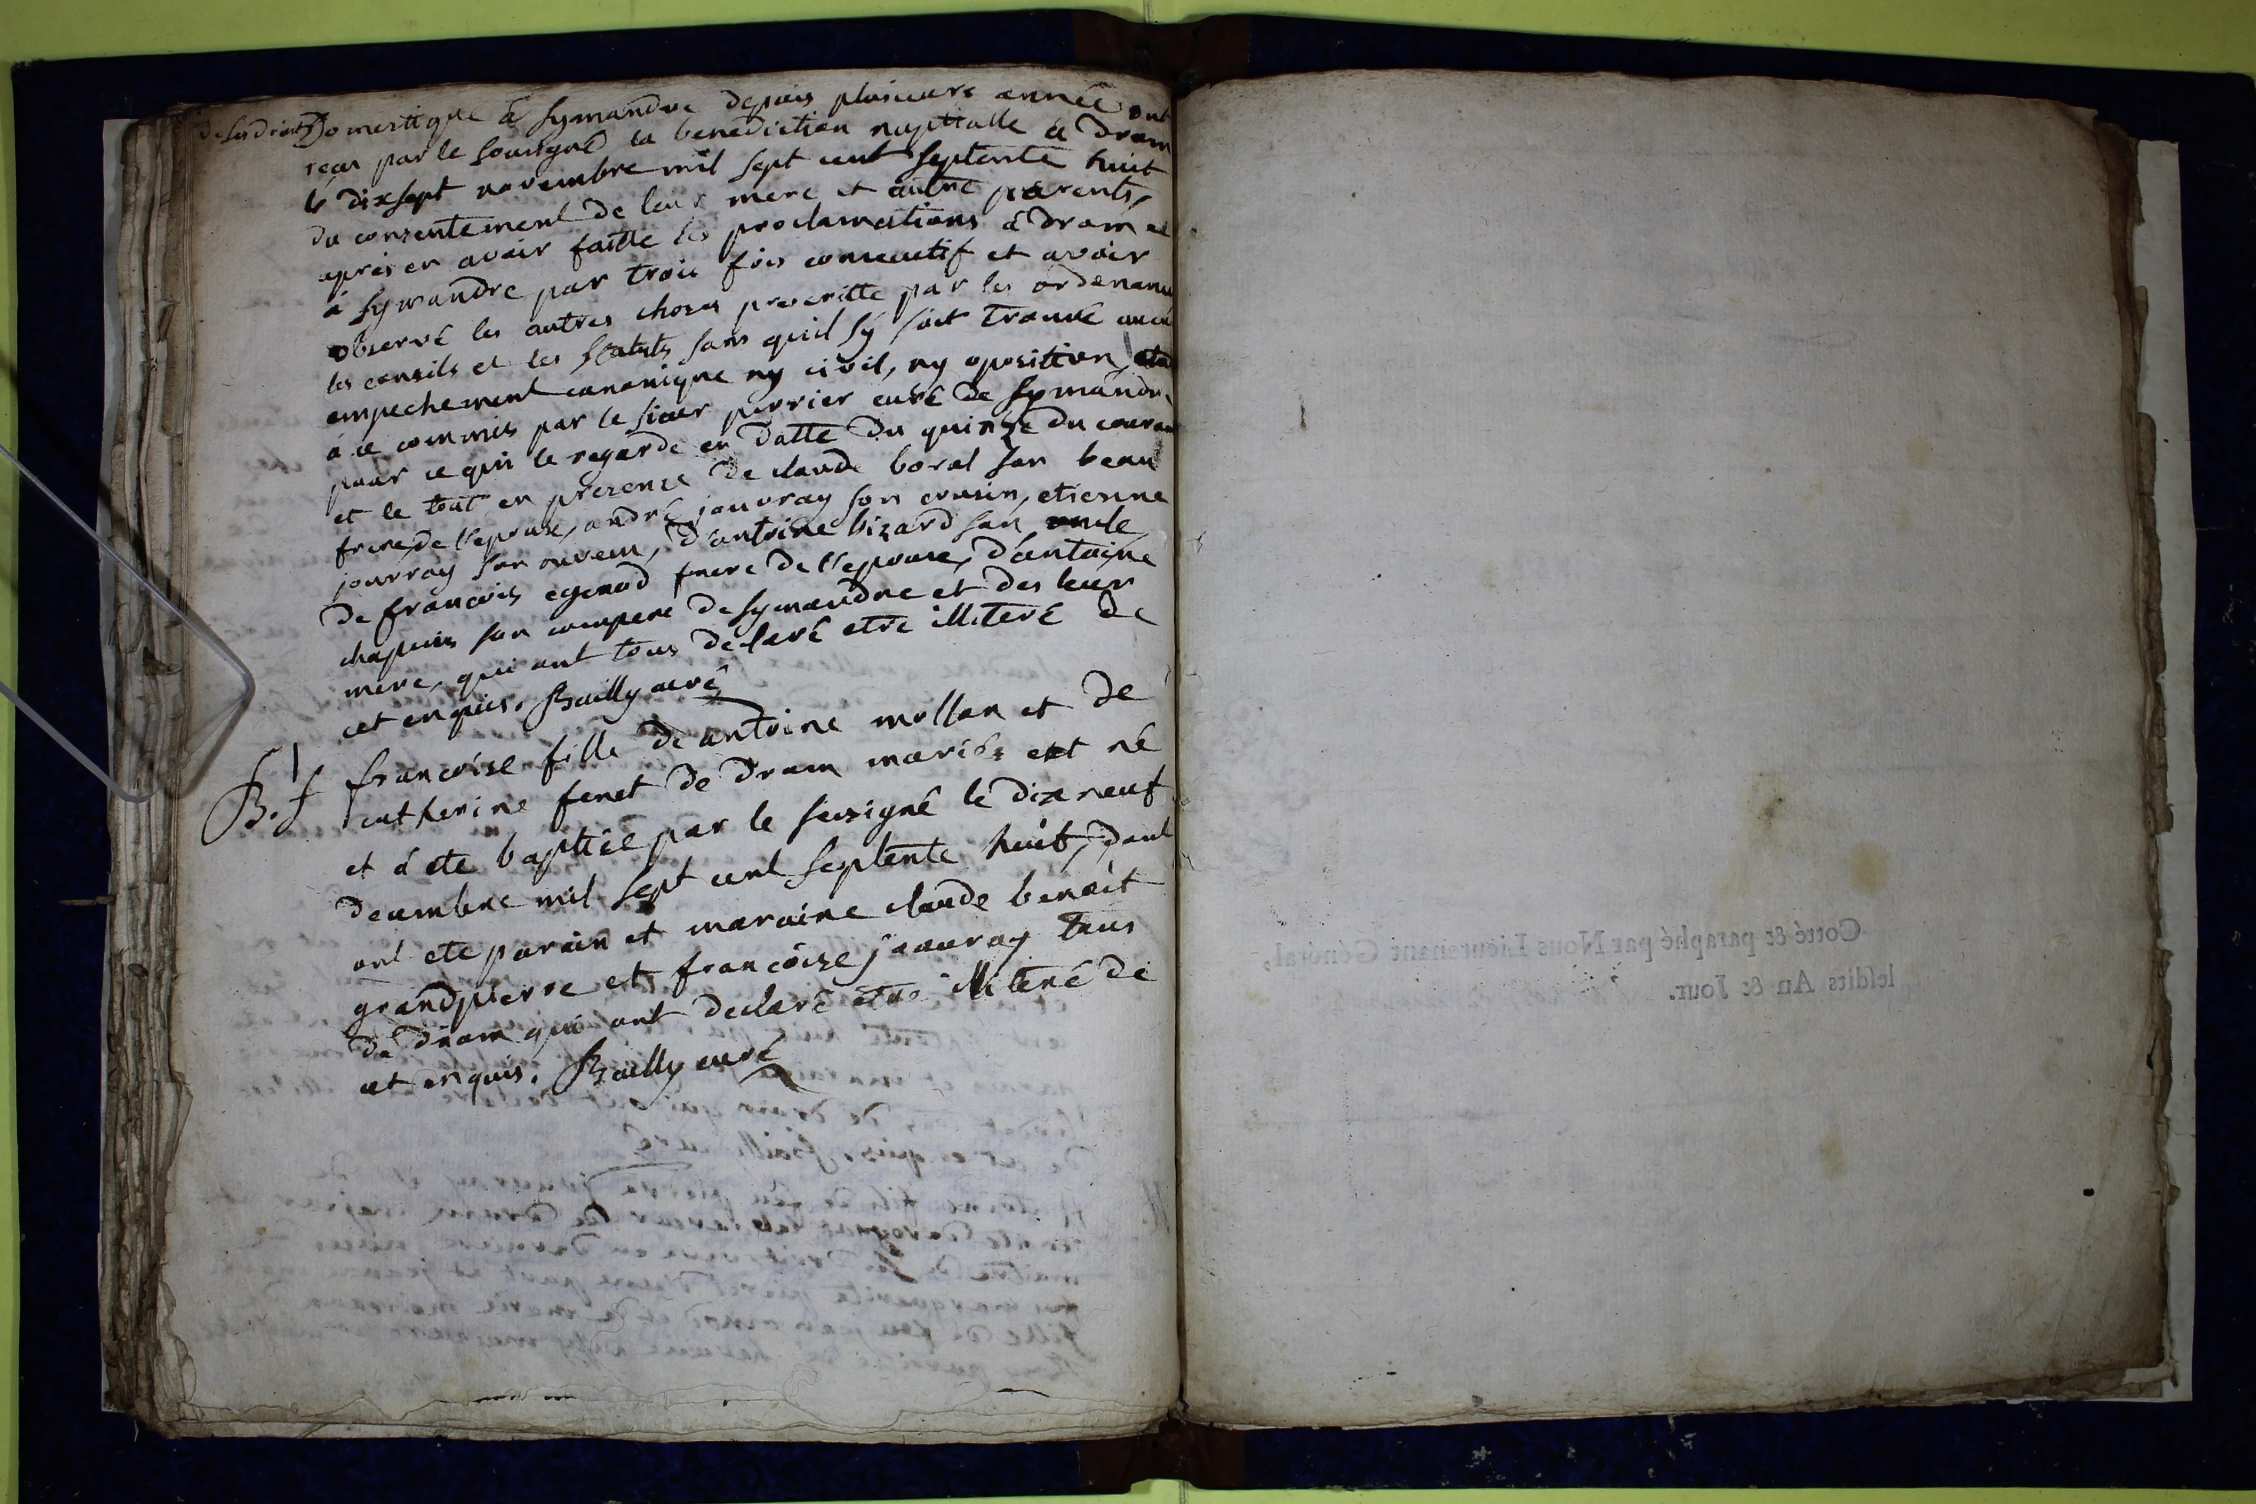 de ses droits Domestique à symandre depuis plusieurs année ont
reçu par le sousigné la benediction nuptialle à dram
le dixsept novembre mil sept cent septente huit
du consentement de leur mere et autre parents,
apres en avoir faitte les proclamations à dram et
à symandre par trois fois consecutif et avoir
observé les autres choses prescritte par les ordenance
les conseils et les statuts sans quil sy soit trouvé aucun
empechement canonique ny civil, ny oposition,
à ce commis par le sieur perrier curé de symandre
pour ce qui le regarde en datte du quinze du courant
et le tout en presence de claude boral son beau
frere, de l'epouse, andré jouvray son cousin, etienne
jouvray son neveu, d'antoine bizard son oncle
de francois egenod frere de l'epouse, d'antoine
chapuis son compere de symandre et des leur
mere, qui ont tous declaré etre illiteré de
cet enquis. Bailly curé
B. f francoise fille de antoine mollan et de
catherine fenet de dram mariés est né
et à ete baptisé par le sousigné le dix neuf
decembre mil sept cent septente huit, dont
ont ete parain et maraine claude benoit
grandpierre et francoise jouvray tous
de dram qui ont declaré etre illiteré de
cet enquis. Bailly curé
Cotté & paraphé par Nous Lieutenant Général,
lesdits An & Jour.